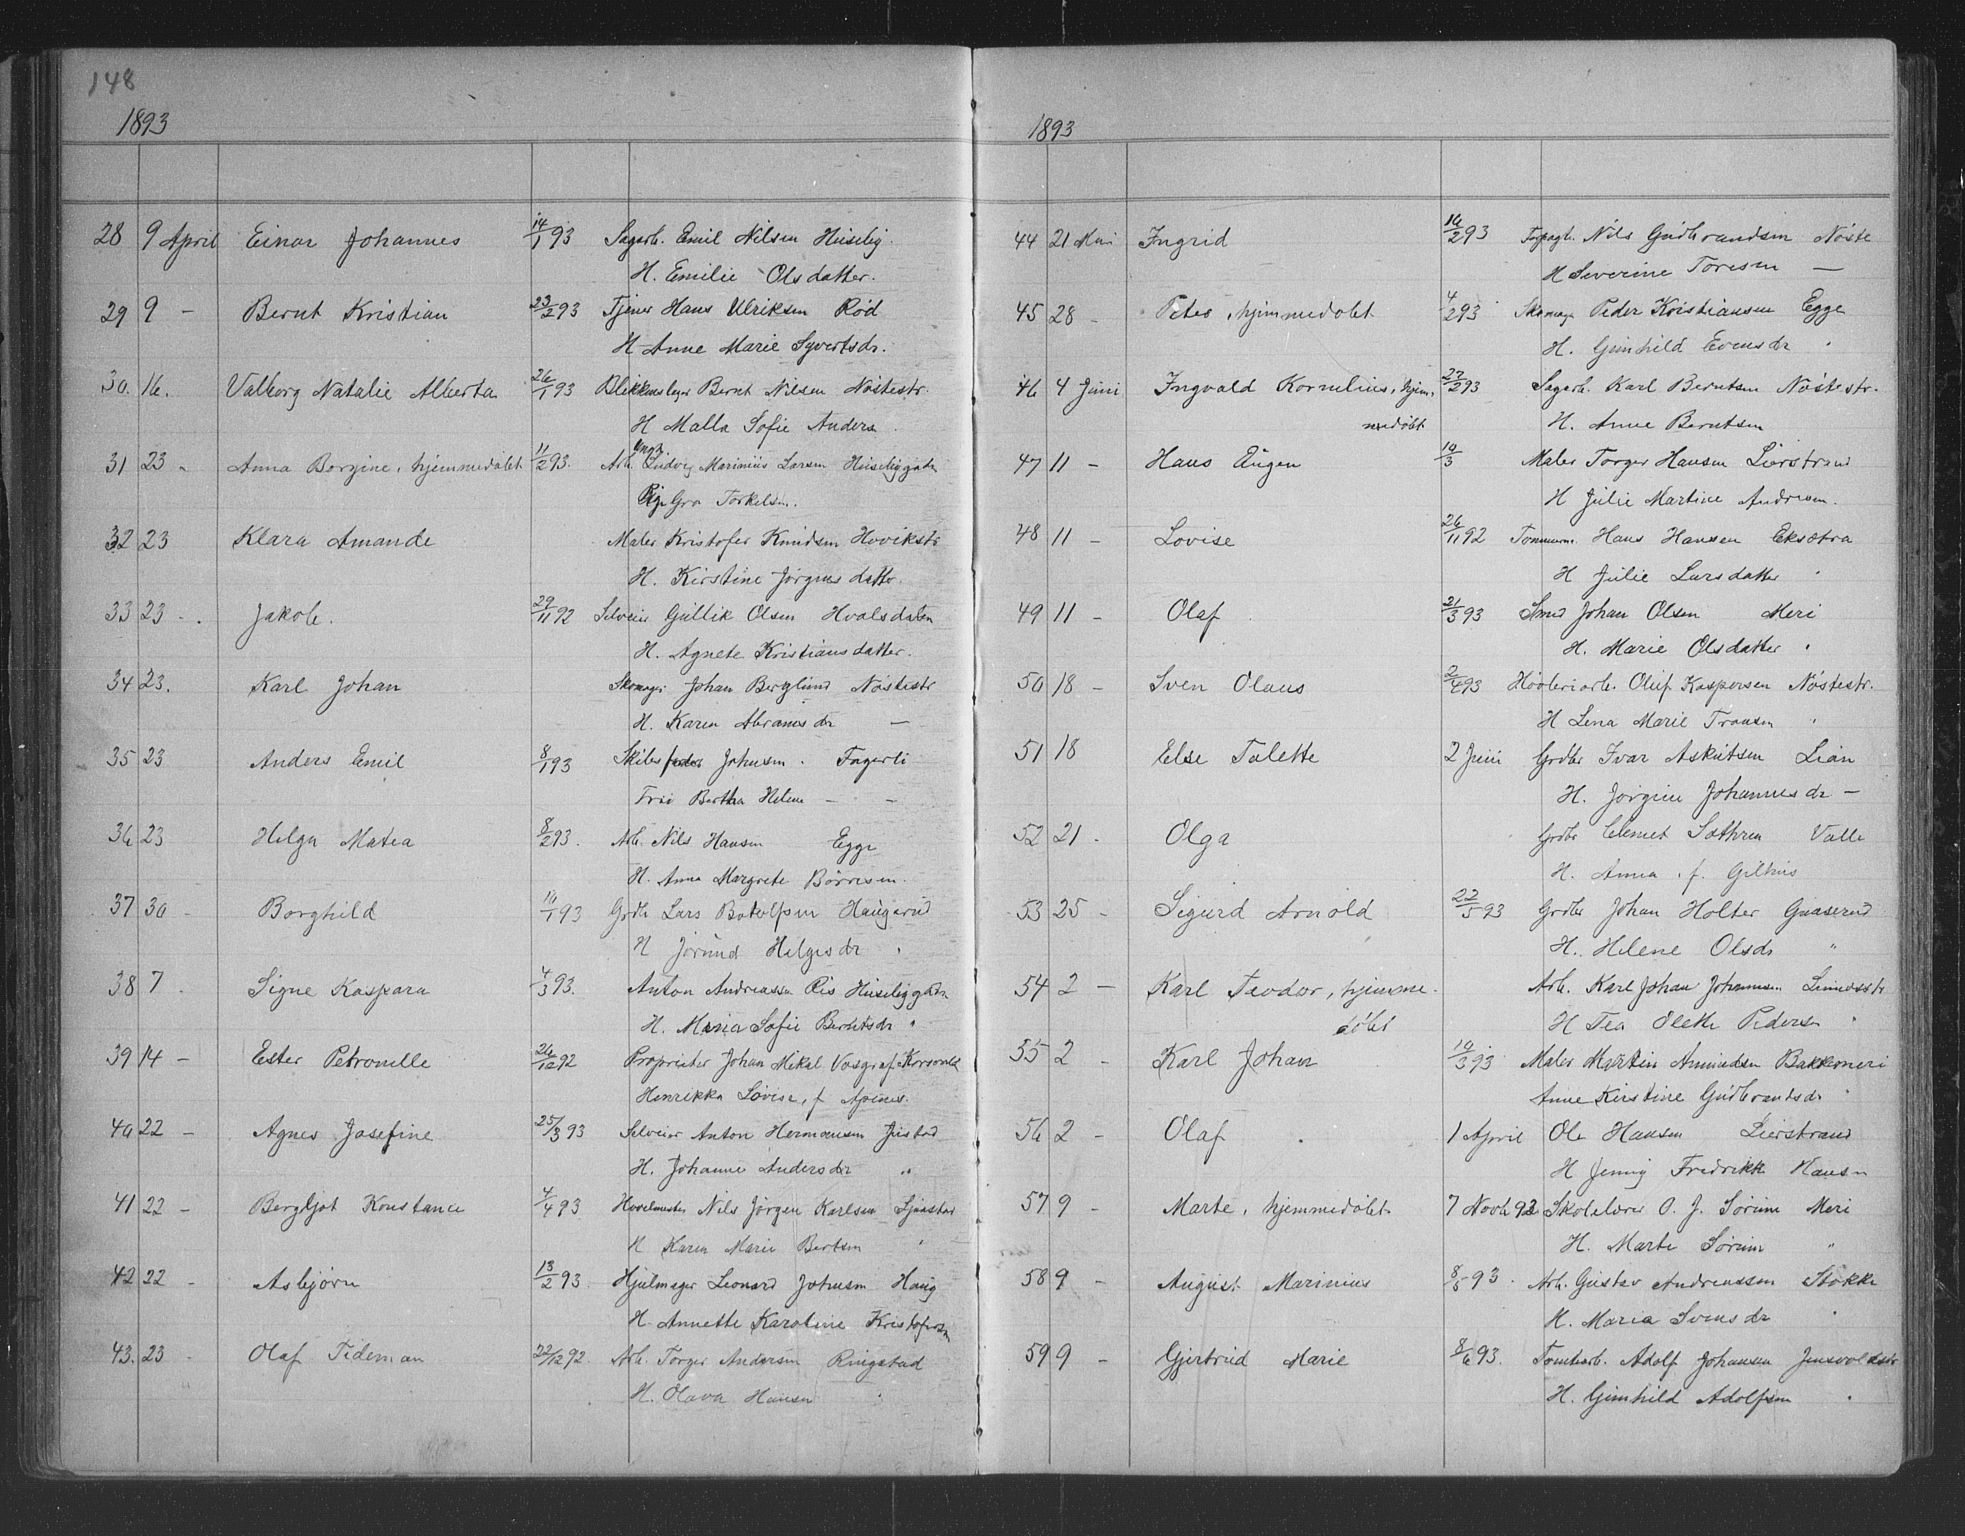 148
1893
28 9 April Einar Johannes 14/1 93 Sagarb. Emil Nilsen Huseby.
H. Emilie Olsdatter.
29 9 – Bernt Kristian 23/2 93 Tjener Hans Ulriksen Rød
H Anne Marie Syvertsdr.
30. 16. Valborg Natalie Alberta 26/1 93 Blikkenslager Bernt Nilsen Nøstestr.
H Malla Sofie Anders
31 23 – Anna Borgine, hjemmedøbt 11/2 93. Arb. Ungk. Ludvig Marinius Larsen Husebygaden
Pige Gro Torkelsen.
32 23 Klara Amande Maler Kristofer Knudsen Hovikstr
H. Kirstine Jørgensdatter.
33 23 – . Jakob. 29/11 92 Selveier Gullik Olsen Hvalsdalen
H. Agnete Kristiansdatter.
34 23. Karl Johan Skomager Johan Berglund Nøstestr
H. Karen Abramsdr –
35 23 Anders Emil 8/1 93 Skiber Johnsen. Fagerli
Fru Bertha Helene – –
36 23 Helga Matea 8/2 93. Arb. Nils Hansen Egge
H. Anna Margrete Børresen.
37 30 – Borghild 16/1 93 Grdb Lars Botolfsen Haugerud
H Jørund Helgesdr "
38 7 . Signe Kaspara 4/3 93. Anton Andreassen Ris Husebygaden
H. Maria Sofie Berntsdr "
39 14 – Ester Petronelle 26/12 92 Proprietær Johan Mikal Vosgraf
Henrikka Lovise, f
40 22 – Agnes Josefine 25/3 93 Selveier Anton Hermansen Justad
H. Johanne Andersdr "
41 22 – Bergljot Konstance 4/4 93 Nils Jørgen Karlsen
H Karen Marie Berntsen "
42 22 – Asbjørn 13/2 93. Hjulmager Leonard Johnsen Haug
H. Annette Karoline Kristofersen
43. 23 – Olaf Tideman 22/12 92. Arb. Torger Andersen Ringstad
H. Olava Hansen "
1893
44 21 Mai Ingrid 16/2 93 Nils Gudbrandsen Nøste
H Severine Toresen –
45 28 – Peter, hjemmedøbt 4/2 93 Skomager Peder Kristiansen Egge
H. Gunhild Evensdr "
46 4 Juni Ingvald Kornelius, hjem- 27/2 93 Sagarb. Karl Berntsen Nøstestr.
medøbt H. Anne Berntsen
47 11 – Hans Eugen 19/3 Maler Torger Hansen Lierstrand
H Julie Martine Andresen.
48 11 – Lovise 26/11 92 Tømmerm. Hans Hansen Eksætra
H Julie Larsdatter "
49 11 – Olaf 21/3 93 Smed Johan Olsen Meri
H. Marie Olsdatter "
50 18 – Sven Olaus 2/4 93 Høvleriarb. Oluf Kaspersen Nøstestr.
H Lena Marie Transen "
51 18 Else Talette 2 Juni Grdbr Ivar Askutsen Lian
H. Jørgine Johannesdr –
52 21 . Olga Grdbr Clemet Sæthren Valle
H. Anna, f. Gilhus
53 25 – Sigurd Arnold 22/5 93 Grdbr Johan Holter Guaserud
H. Helene Olsdr "
54 2 – Karl Teodor, hjemme- Arb. Karl Johan Johannesen
døbt H Tea Oleth Pedersen "
55 2 – Karl Johan 19/3 93 Maler Martin Amundsen Bakkemeri
Anne Kirstine Gudbrandsdr "
56 2 – Olaf 1 April Ole Hansen Lierstrand
H Jenny Fredrikke Hansen
57 9 – Marte, hjemmedøbt 7 Novb 92 Skolelærer O. J. Sørum Meri
H. Marte Sørum "
58 9 – August Marinius 8/5 93. Arb. Gustav Andreassen Stokke
H. Maria Svensdr "
59 9 – Gjertrud Marie 8/6 93. Tomtearb. Adolf Johansen
H. Gunhild Adolfsen "